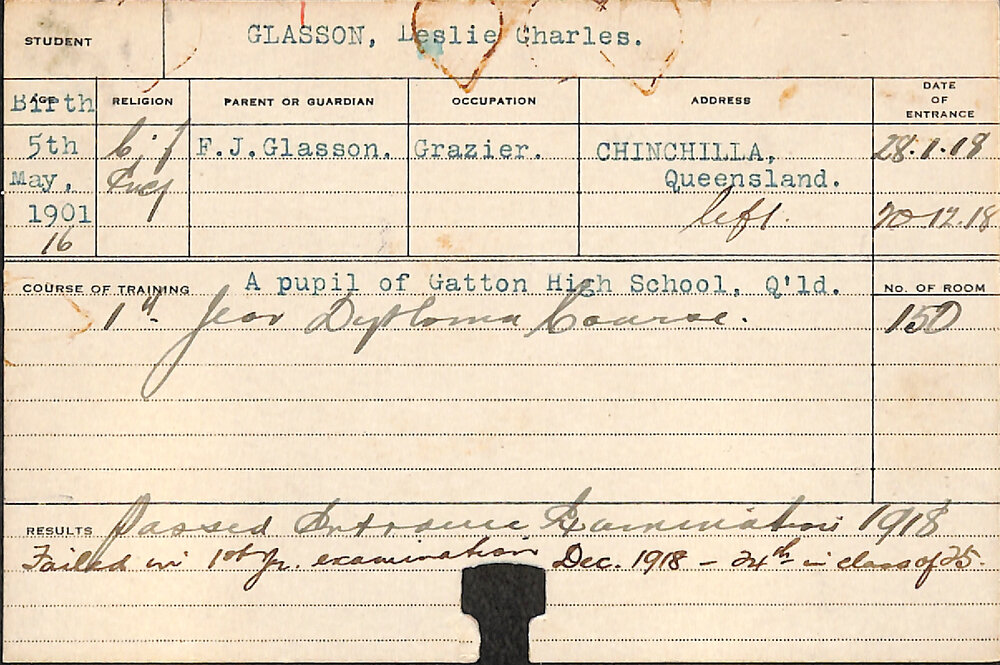 STUDENT GLASSON, Leslie Charles.
Birth AGE RELIGION PARENT OR GUARDIAN OCCUPATION ADDRESS DATE OF ENTRANCE
5th C. of F.J.Glasson. Grazier. CHINCHILLA, 28.1.18
May, Eng Queensland.
1901 left. 20-12.18
16
COURSE OF TRAINING A pupil of Gatton High School, Q'ld. NO. OF ROOM
1st Year Diploma Course. 150
RESULTS Passed Entrance Examination 1918
Failed in 1st yr. examination Dec. 1918 – 24th in class of 25.